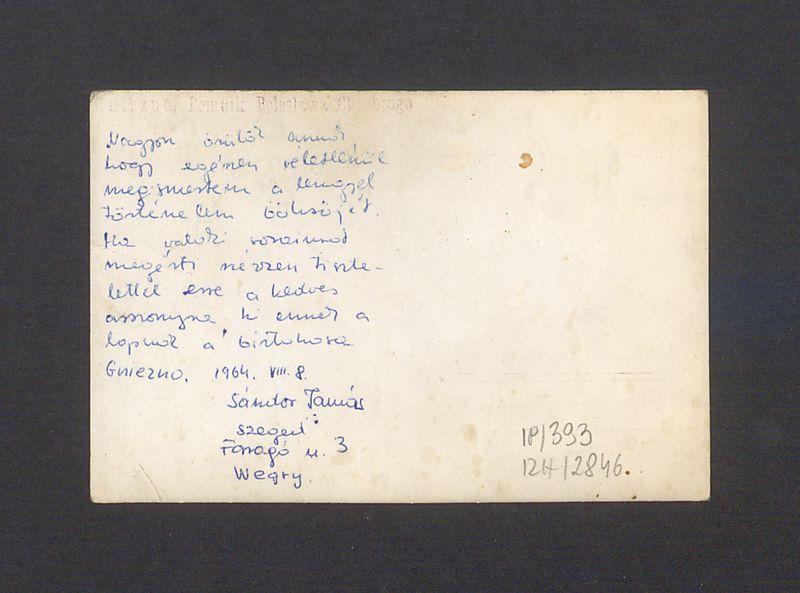 Pomnik Bolesława Chrobrego
Nagyon örülök annak
hogy egészen véletlenül
megismertem a lengyel
történelem bölcsőjét.
Ha valaki sorainkat
megérti nézzen tiszte-
lettel erre a kedves
asszonyra ki ennek a
lapnak a birtokosa
Gniezno. 1964. VIII. 8.
Sándor Tamás
Szeged
Faragó u. 3
Węgry.
IP/393
1214/2846.